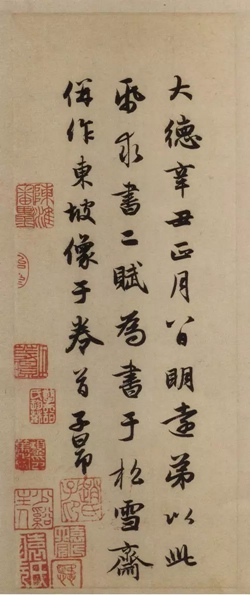 大德辛丑正月八日明遠弟以此
紙求書二賦為書于松雪齋
併作東坡像于卷首子昂